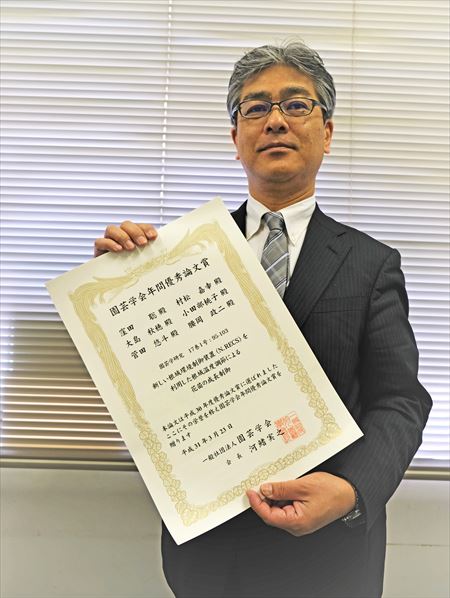 園芸学会年間優秀論文賞
窪田 聡殿 村松 嘉幸殿
大島 秋穂殿 小田部桃子殿
菅田 悠斗殿 腰岡 政二殿
園芸学研究 17巻1号:95-103
新しい根域環境制御装置(N.RECS)を
利用した根域温度調節による
花苗の成長制御
本論文は平成30年度優秀論文賞に選ばれました
ここにその学堂を称え園芸学会年間優秀論文賞を
贈ります
平成31年3月23日
一般社団法人園芸学会
会長 河鰭実之